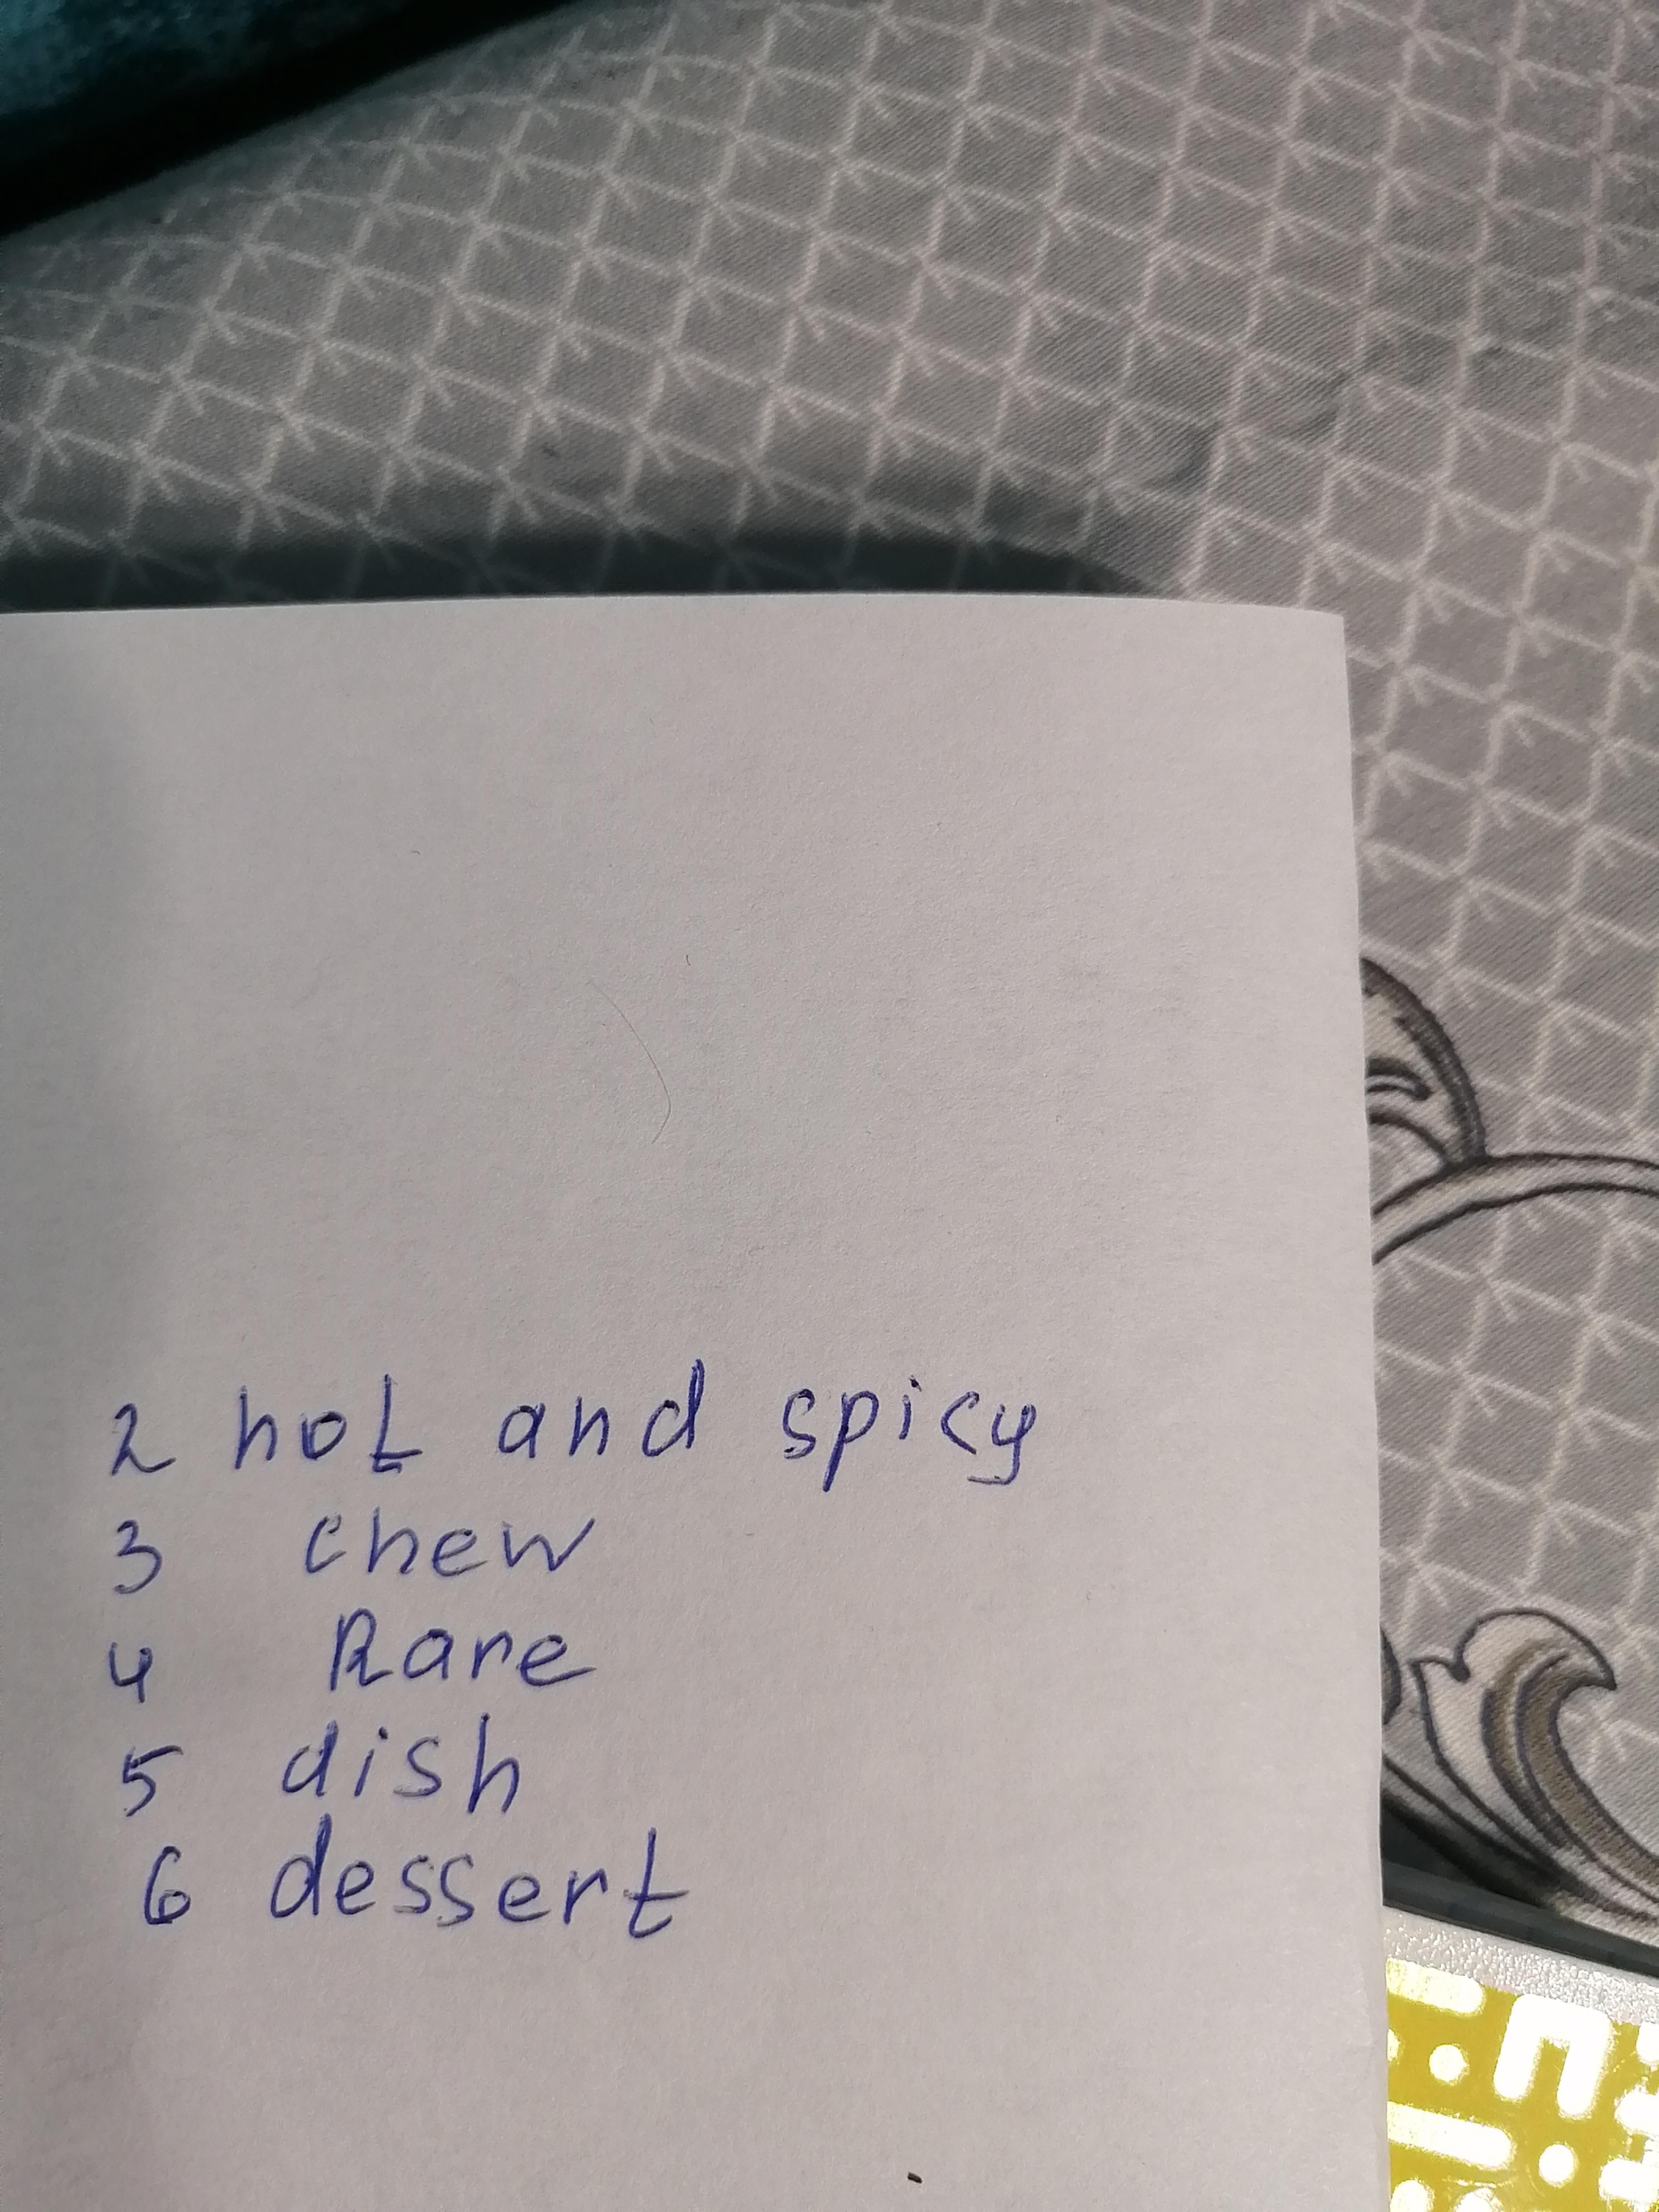 2 hot and spicy
3 chew
4 Rare
5 dish
6 dessert